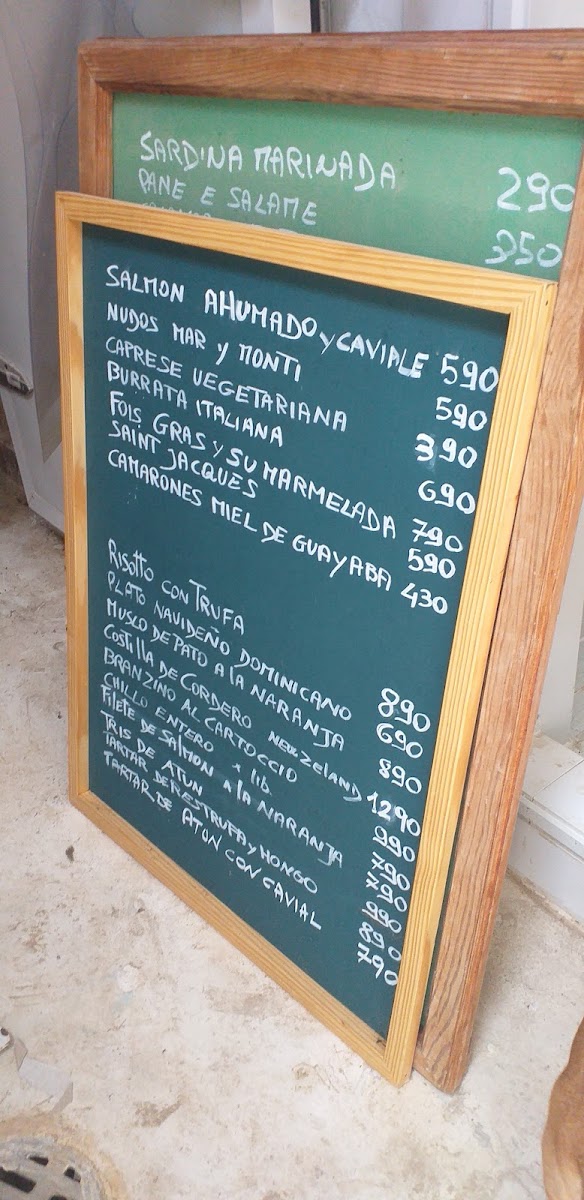 SARDINA MARINADA 290
PANE E SALAME 350
SALMON AHUMADO y CAVIALE 590
NUDOS MAR y MONTI 590
CAPRESE VEGETARIANA 390
BURRATA ITALIANA 690
FOIS GRAS y SU MARMELADA 790
SAINT JACQUES 590
CAMARONES MIEL DE GUAYABA 430
RISOTTO CON TRUFA 890
PLATO NAVIDEÑO DOMINICANO 690
MUSLO DE PATO A LA NARANJA 890
COSTILLA DE CORDERO NEUZELAND 1290
BRANZINO AL CARTOCCIO 990
CHILLO ENTERO * lib. 790
FILETE DE SALMON A la NARANJA 790
TRIS DE ATUN 990
TARTAR DE RES TRUFA y HONGO 890
TARTAR DE ATON CON CAVIAL 790